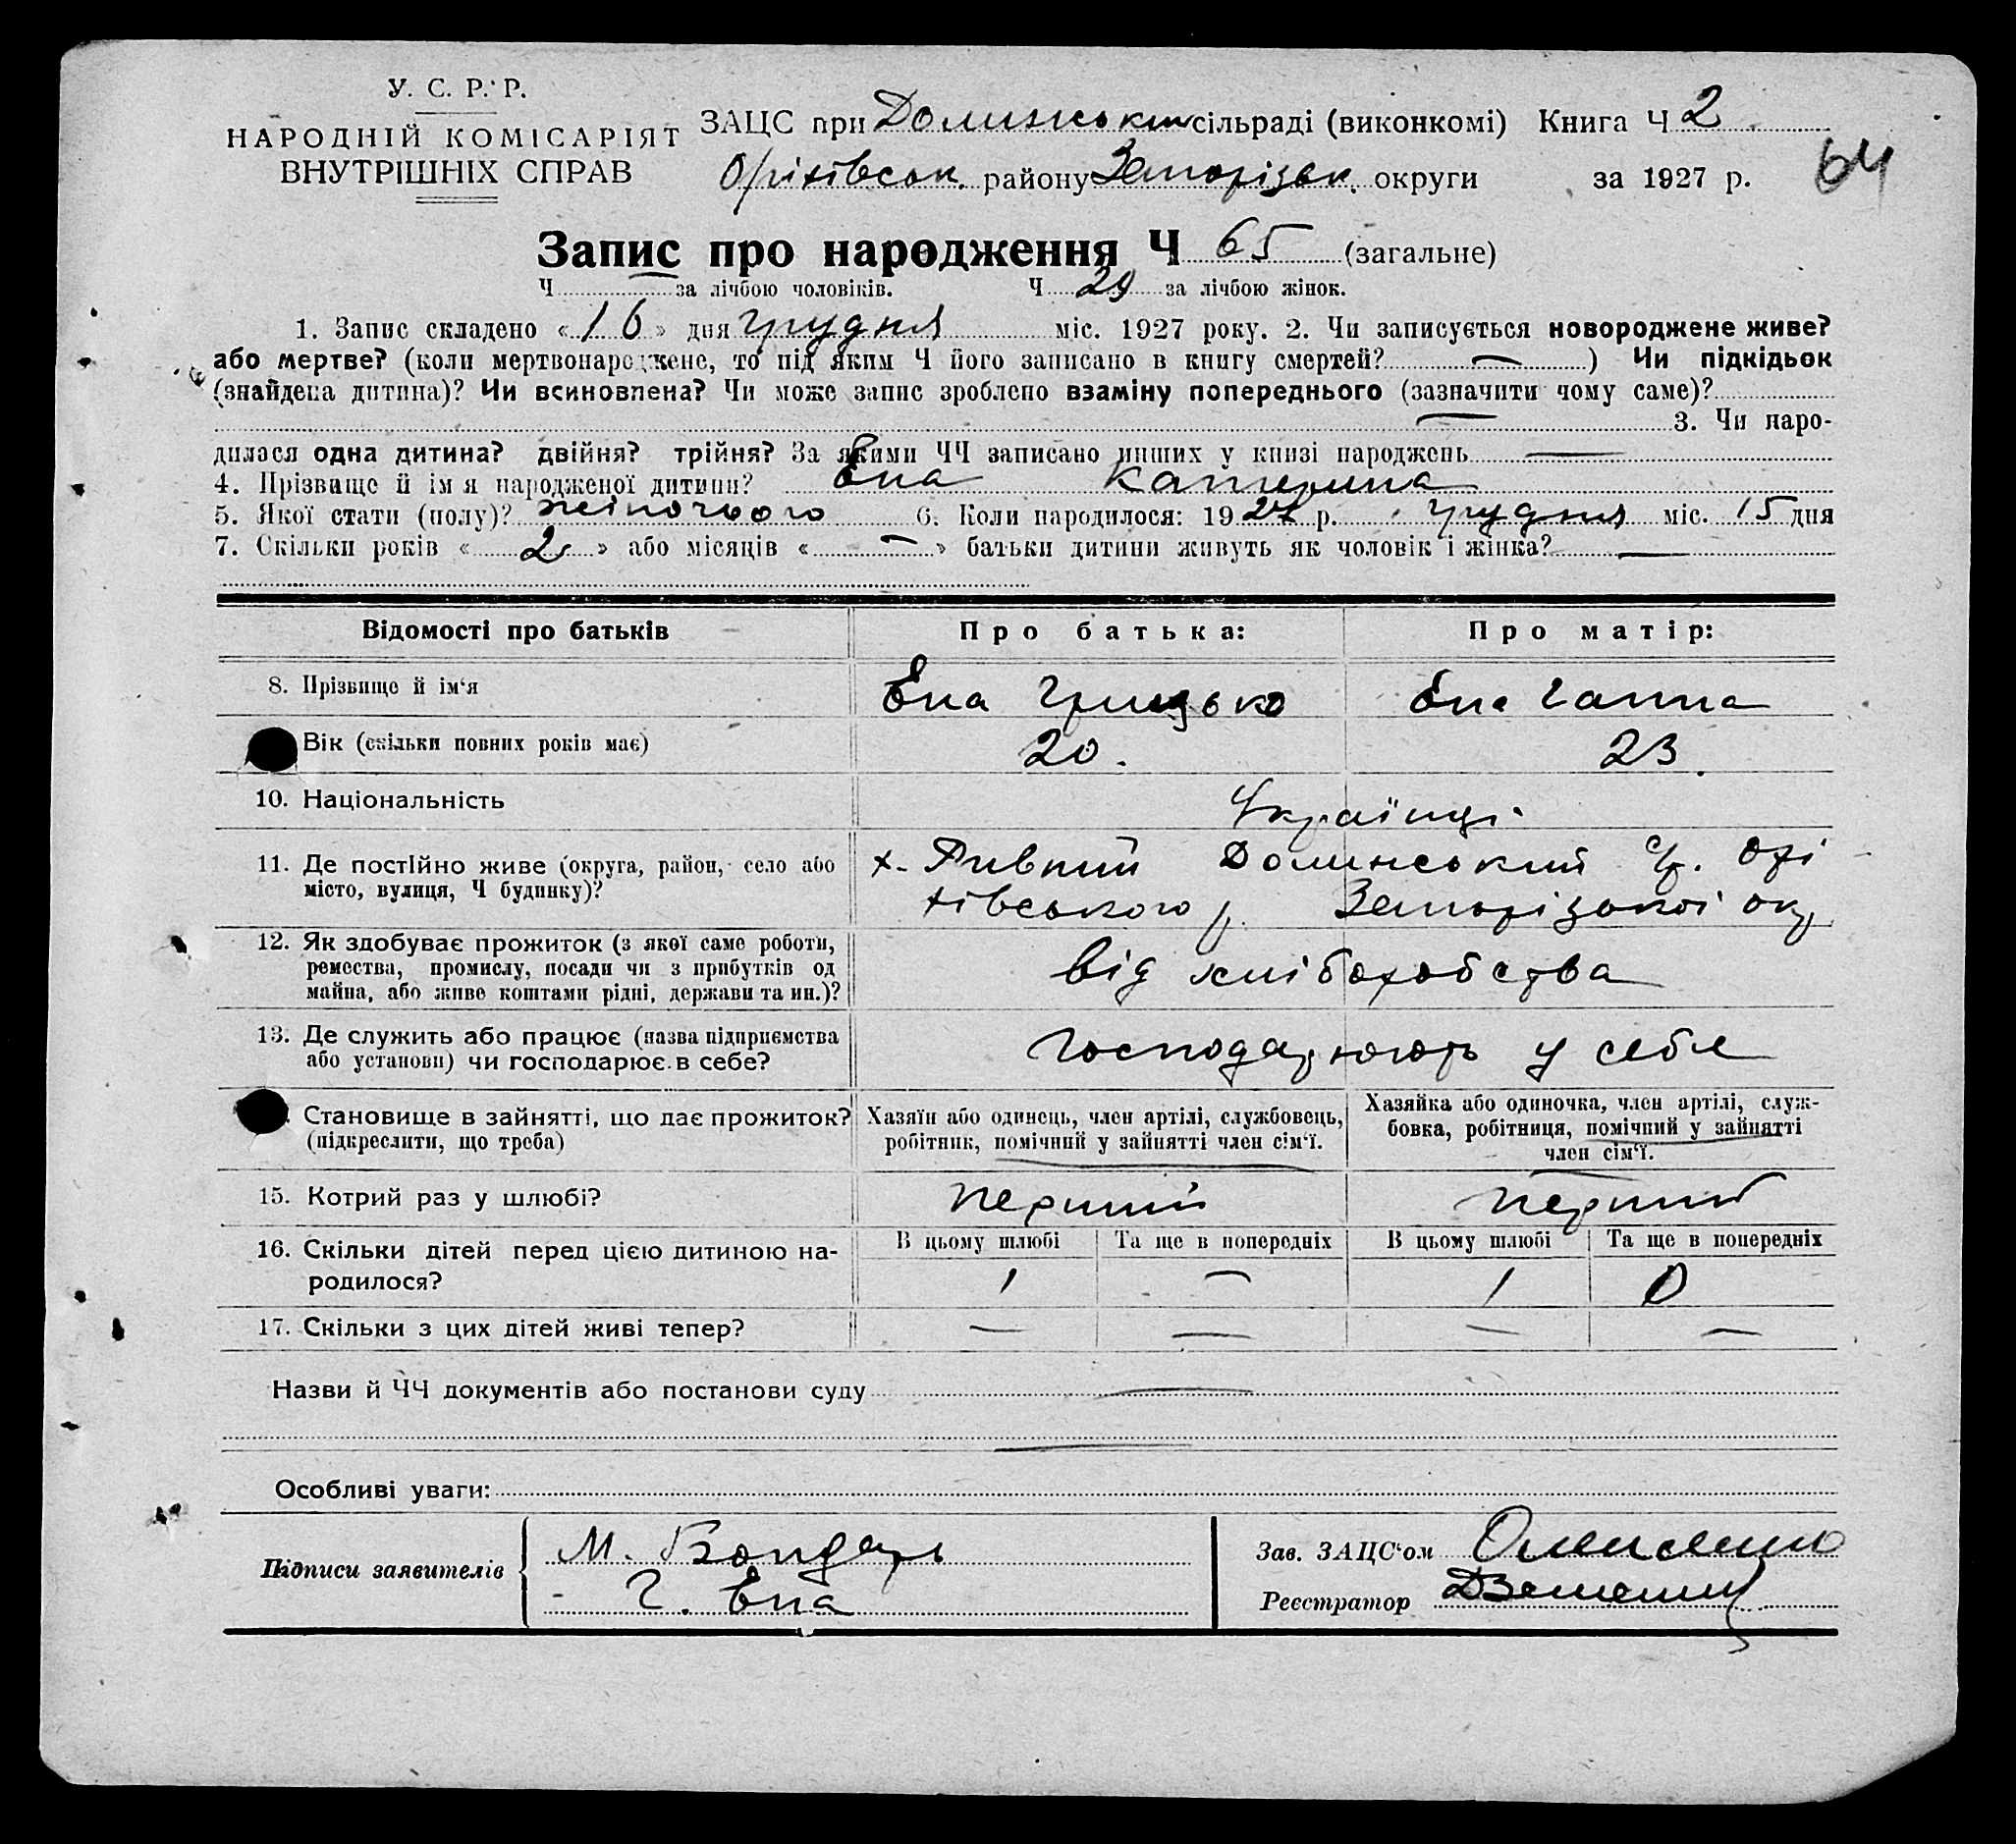 У. С. Р. Р.
НАРОДНІЙ КОМІСАРІЯТ
ВНУТРІШНІХ СПРАВ
ЗАЦС при Долинськім сільраді (виконкомі) Книга Ч 2
Оріхівськ. району Запорізьк. округи за 1927 р.
64
Запис про народження Ч 65 (загальне)
Ч — за лічбою чоловіків. Ч 29 за лічбою жінок.
1. Запис складено «16» дня грудня міс. 1927 року. 2. Чи записується новороджене живе?
або мертве? (коли мертвонароджене, то під яким Ч його записано в книгу смертей? —) Чи підкідьок
(знайдена дитина)? Чи всиновлена? Чи може запис зроблено взаміну попереднього (зазначити чому саме)?
— 3. Чи наро-
дилася одна дитина? двійня? трійня? За якими ЧЧ записано инших у книзі народжень —
4. Прізвище й ім я народженої дитини? Єпа Катерина
5. Якої стати (полу)? жіночього 6. Коли народилося: 1927 р. грудня міс. 15 дня
7. Скільки років «2» або місяців «—» батьки дитини живуть як чоловік і жінка? —
Відомості про батьків Про батька: Про матір:
8. Прізвище й ім‘я Єпа Грицько Єпа Ганна
Вік (скільки повних років має) 20. 23.
10. Національність Українці.
11. Де постійно живе (округа, район, село або х. Ривний Долинський с/р. Орі
місто, вулиця, Ч будинку)? хівського р. Запорізької окр
12. Як здобуває прожиток (з якої саме роботи,
ремества, промислу, посади чи з прибутків од від хліборобства
майна, або живе коштами рідні, держави та ин.)?
13. Де служить або працює (назва підприємства Господарюють у себе
або установи) чи господарює в себе?
Становище в зайнятті, що дає прожиток? Хазяїн або одинець, член артілі, службовець, Хазяйка або одиночка, член артілі, служ-
(підкреслити, що треба) робітник, помічний у зайнятті член сім‘ї. бовка, робітниця, помічний у зайнятті
член сім‘ї.
15. Котрий раз у шлюбі? перший перший
16. Скільки дітей перед цією дитиною на- В цьому шлюбі Та ще в попередніх В цьому шлюбі Та ще в попередніх
родилося? 1 — 1 0
17. Скільки з цих дітей живі тепер? — — — —
Назви й ЧЧ документів або постанови суду —
—
Особливі уваги:
Підписи заявителів М. Бондарь Зав. ЗАЦС‘ом
Г. Єпа Реєстратор